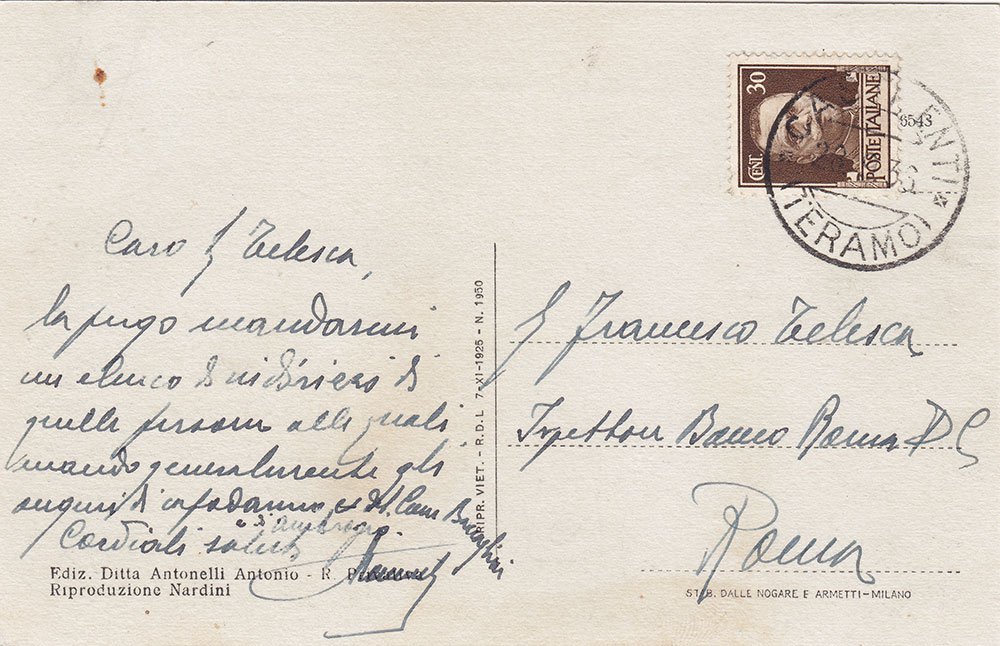 Caro S Telesca,
La prego mandarmi
un elenco di indirizzi di
quelle persone alle quali
mando generalmente gli
auguri di capodanno, e
Cordiali saluti
Ediz. Ditta Antonelli Antonio - R.
Riproduzione Nardini
RIPR. VIET. - R.D.L. 7-XI-1925 - N. 1950
CENT. 30
POSTE ITALIANE
6543
(TERAMO)
S Francesco Telesca
Ispettore Banco Roma D C
Roma
ST B. DALLE NOGARE E ARMETTI-MILANO